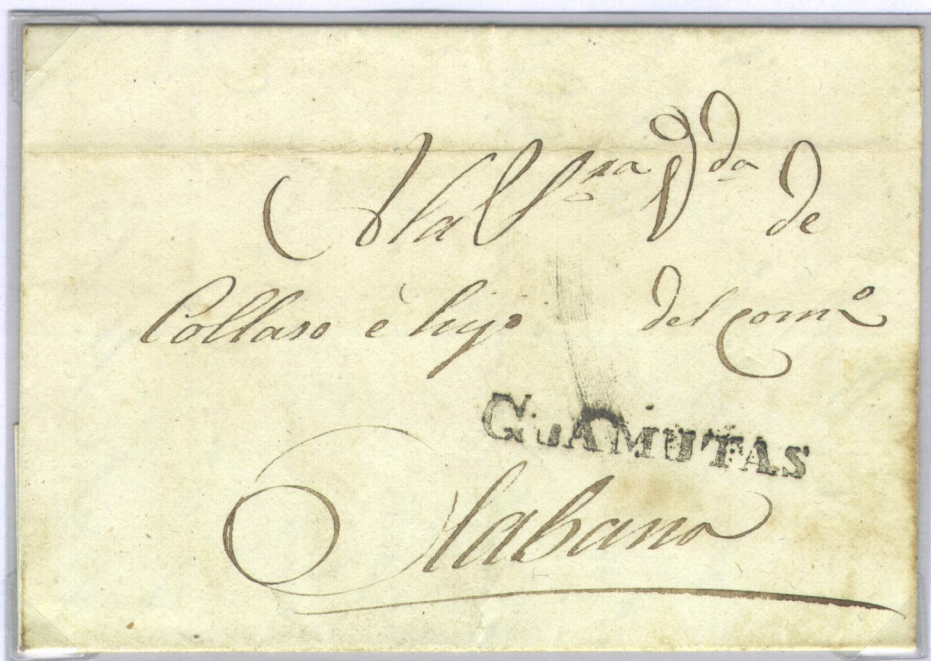 A la S.ra V.da de
Collaso è hijo del com.o
GUAMUTAS
Habana